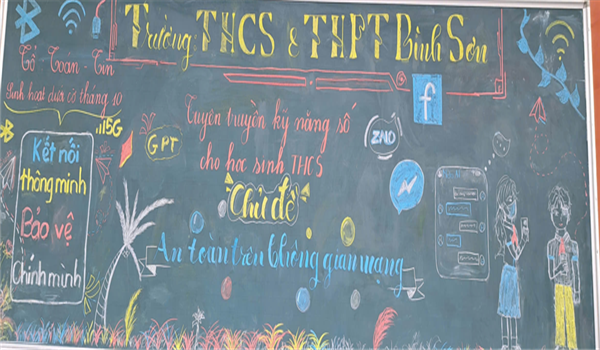 Trường THCS & THPT Bình Sơn
Tổ - Toán - Tin
Sinh hoạt dưới cờ tháng 10
5G
GPT
Kết nối
thông minh
Bảo vệ
Chính mình
Tuyên truyền kỹ năng số
cho học sinh THCS
Chủ đề
An toàn trên không gian mạng
f
ZNO